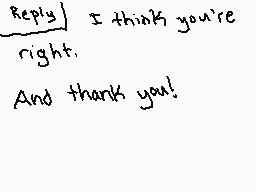 Reply I think you're
right.
And thank you!